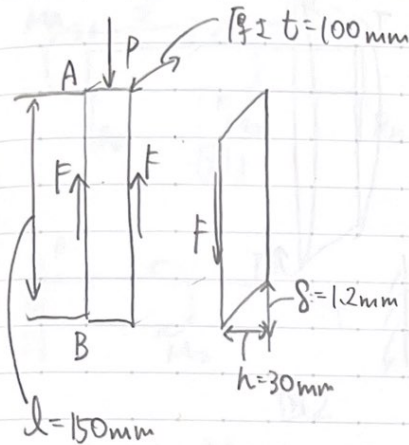 厚さ t=100mm
A
P
F
F
F
δ=1.2mm
B
h=30mm
l=150mm